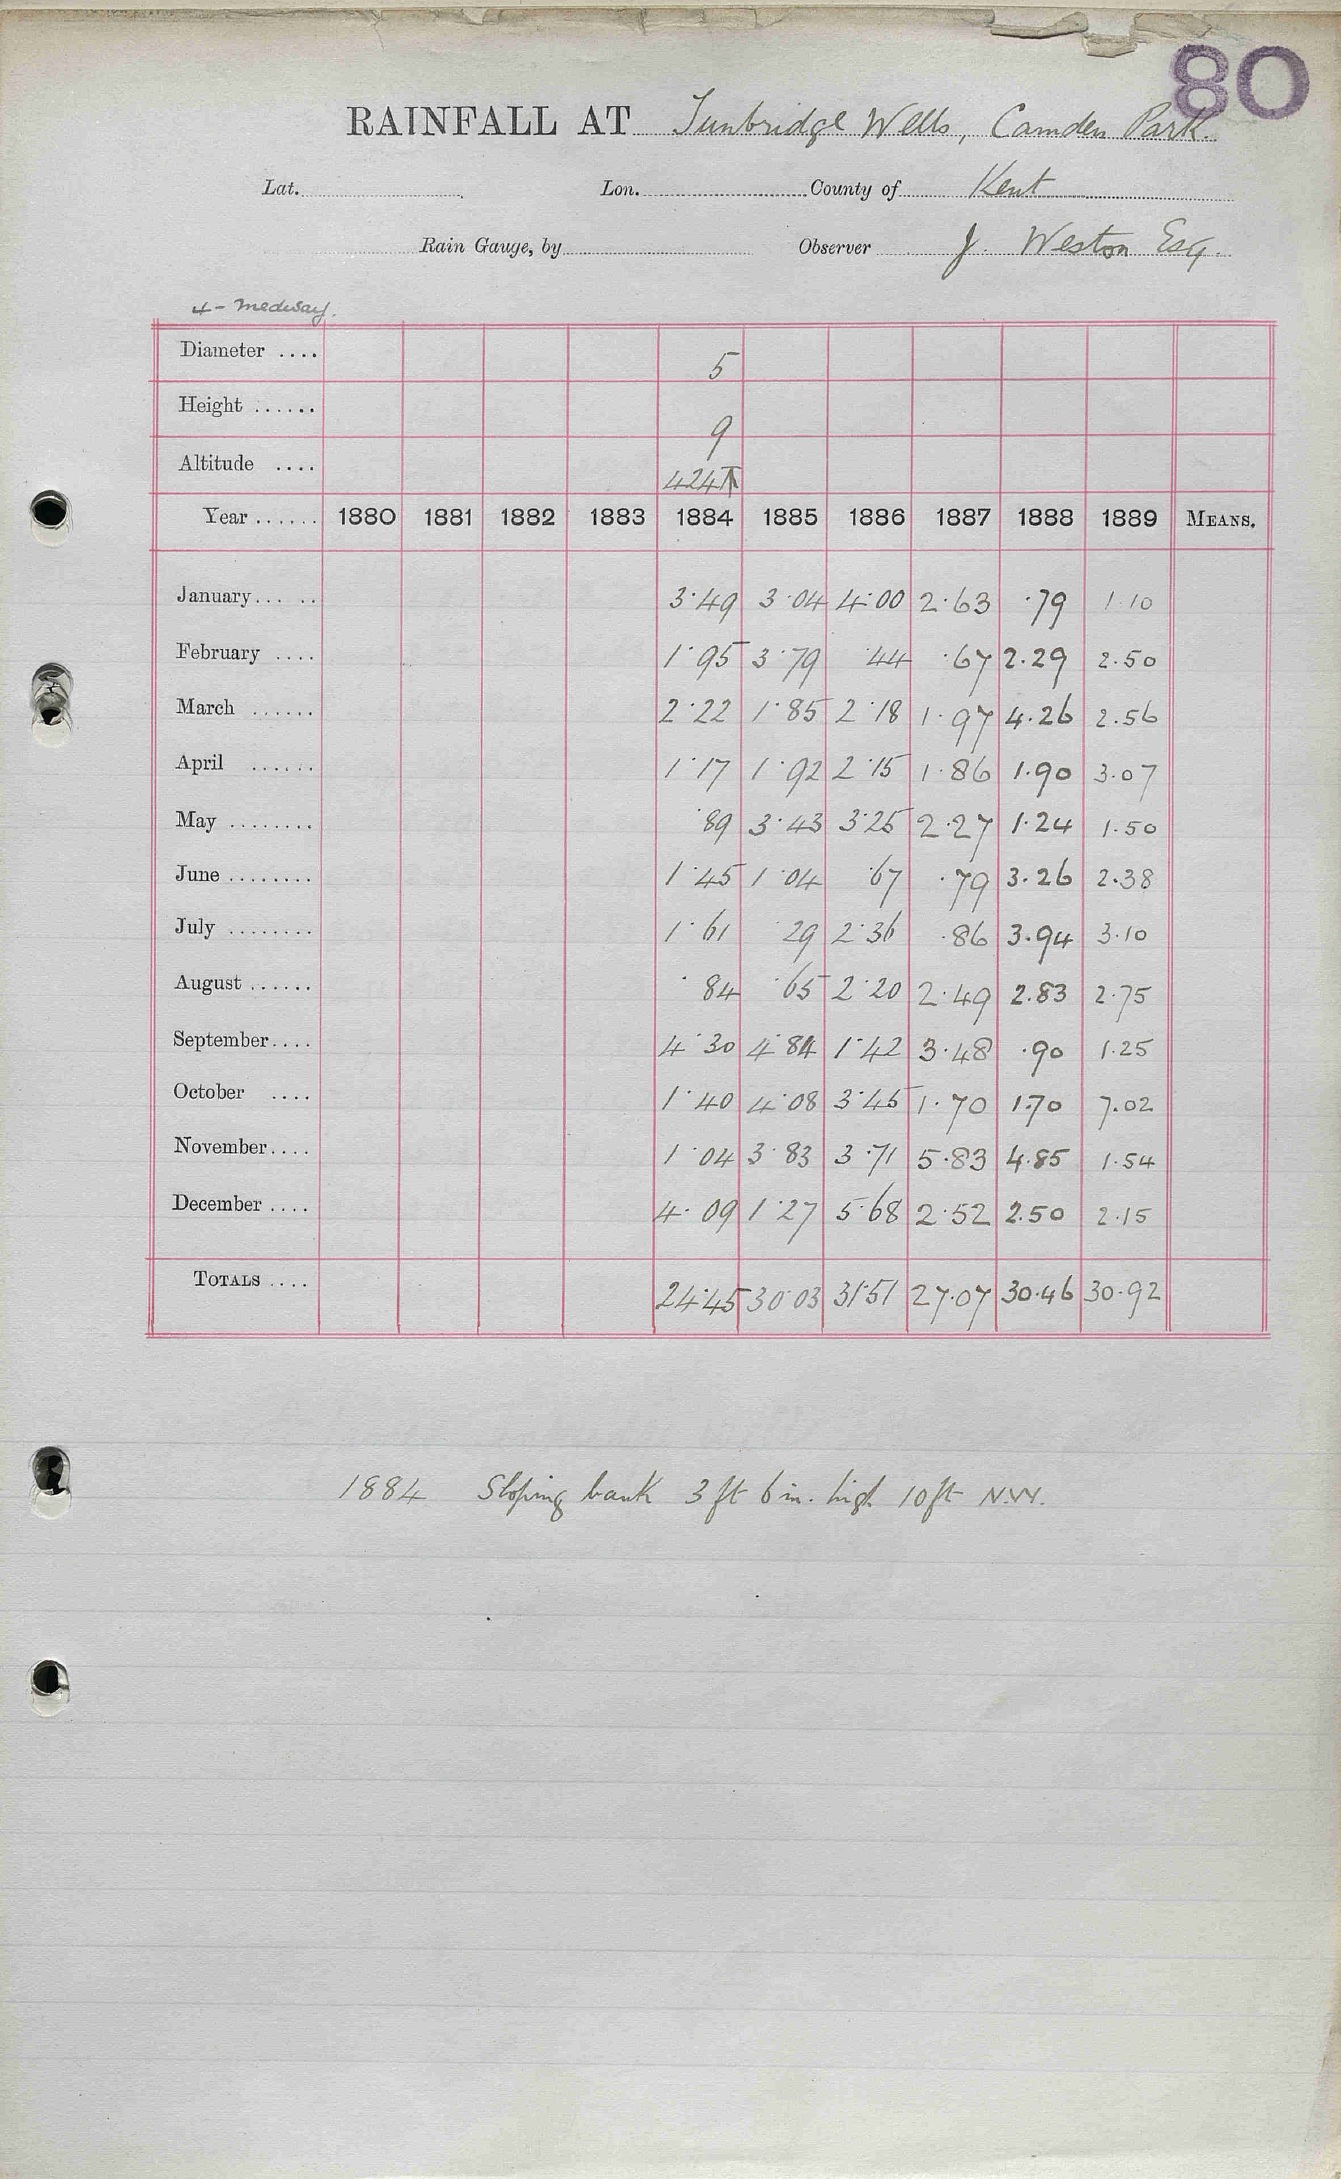 80
RAINFALL AT Tunbridge Wells, Camden Park.
Lat. Lon. County of Kent
Rain Gauge, by Observer J. Weston Esq.
4 - Medway.
Diameter .... 5
Height ...... 9
Altitude .... 424 T
Year ...... 1880 1881 1882 1883 1884 1885 1886 1887 1888 1889 MEANS.
January ... .. 3.49 3.04 4.00 2.63 .79 1.10
February .... 1.95 3.79 .44 .67 2.29 2.50
March ...... 2.22 1.85 2.18 1.97 4.26 2.56
April ...... 1.17 1.92 2.15 1.86 1.90 3.07
May ........ .89 3.43 3.25 2.27 1.24 1.50
June ........ 1.45 1.04 .67 .79 3.26 2.38
July ........ 1.61 .29 2.36 .86 3.94 3.10
August ...... .84 .65 2.20 2.49 2.83 2.75
September .... 4.30 4.84 1.42 3.48 .90 1.25
October .... 1.40 4.08 3.45 1.70 1.70 7.02
November .... 1.04 3.83 3.71 5.83 4.85 1.54
December .... 4.09 1.27 5.68 2.52 2.50 2.15
TOTALS .... 24.45 30.03 31.51 27.07 30.46 30.92
1884 Sloping bank 3 ft 6 in. high 10 ft N.W.